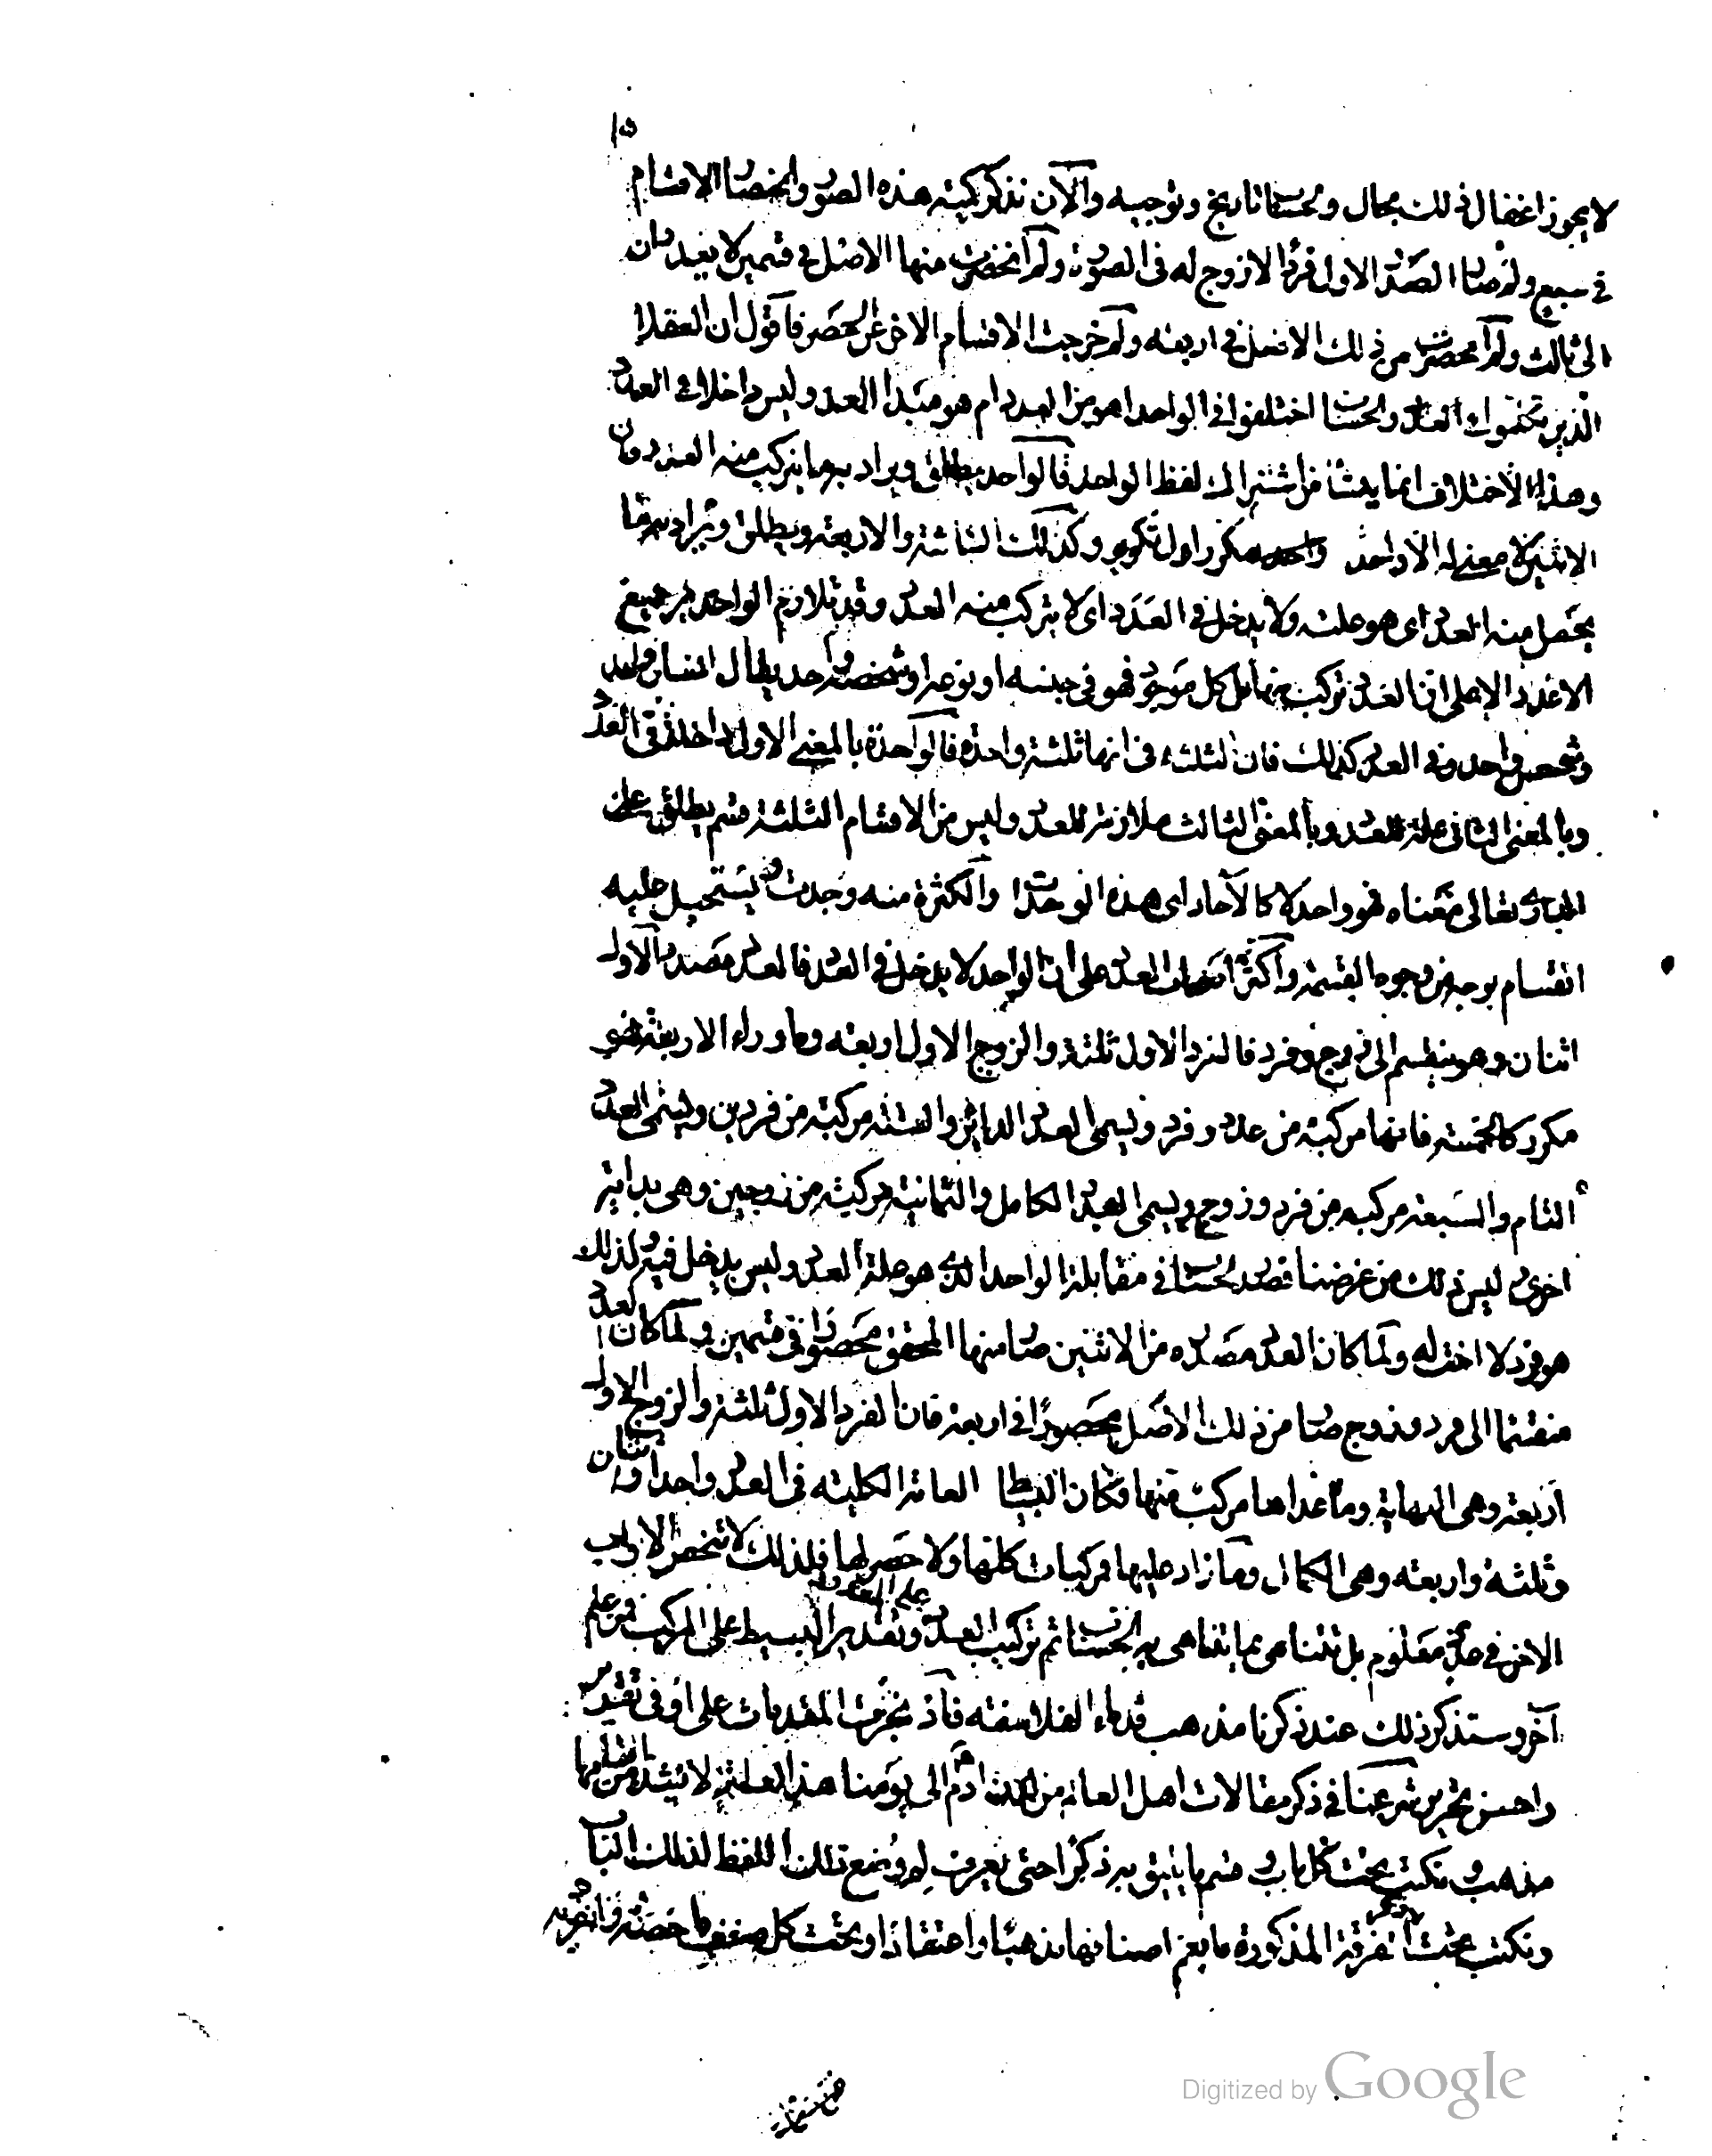 ١٥
لا يجوز اغفال ذلك بحال وبحساب تاريخ وتوجيه والآن نذكر كمية هذه الصور وانحصار الاقسام
في سبع ولم صار الصدر الاول فردا لا زوج له في الصورة ولم انحصرت منها الاصل في قسمين لا يعدوان
الى ثالث ولم انحصرت من ذلك الاصل في اربعة ولم خرجت الاقسام الاخر عن الحصر فاقول ان العقلا
الذين تكلموا في العدد والحساب اختلفوا في الواحد اهو من العدد ام هو مبدا العدد وليس داخلا في العدد
وهذا الاختلاف انما ينشا من اشتراك لفظ الواحد فالواحد يطلق ويراد به ما يتركب منه العدد فان
الاثنين لا معنى له الا واحد مكرر اول تكرير وكذلك الثلثة والاربعة ويطلق ويراد به ما
يحصل منه العدد اى هو علته ولا يدخل في العدد اى لا يتركب منه العدد وقد تلازم الواحد جميع
الاعداد لا على ان العدد تركب منها بل كل موجود فهو في جنسه او نوعه او شخصه واحد يقال انسان واحد
وشخص واحد وفي العدد كذلك فان الثلثة في انها ثلثة واحدة فالواحدة بالمعنى الاول داخلة في العدد
وبالمعنى الثاني علة للعدد وبالمعنى الثالث ملازمة للعدد وليس من الاقسام الثلثة قسم يطلق على
البارى تعالى معناه فهو واحد لا كالآحاد اى هذه الوحدات والكثرة منه وجدت ويستحيل عليه
انقسام بوجه من وجوه القسمة واكثر اصحاب العدد على ان الواحد لا يدخل في العدد فالعدد مصدره الاول
اثنان وهو ينقسم الى زوج وفرد فالفرد الاول ثلثة والزوج الاول اربعة وما وراء الاربعة فهو
مكرر كالخمسة فانها مركبة من عدد وفرد ويسمى العدد الدائر والستة مركبة من فردين ويسمى العدد
التام والسبعة مركبة من فرد وزوج ويسمى العدد الكامل والثمانية مركبة من زوجين وهى بداية
اخرى ليس ذلك من غرضنا فصدر الحساب في مقابلة الواحد الذى هو علة العدد وليس يدخل فيه ولذلك
هو فرد لا اخت له ولما كان العدد مصدره من الاثنين صار منها المحقق محصورا في قسمين ولما كان العدد
منقسما الى فرد وزوج صار من ذلك الاصل محصورا في اربعة فان الفرد الاول ثلثة والزوج الاول
اربعة وهى النهاية وما عداها مركب منها فكان البسايط العامة الكلية في العدد واحد واثنان
وثلثة واربعة وهى الكمال وما زاد عليها فمركبات كلها ولا حصر لها فلذلك لا تنحصر الابواب
الاخر في عدد معلوم بل تتناهى بما يتناهى به الحساب ثم تركيب العدد على المعدود وتقدير البسيط على المركب فمن علم
آخر وسنذكر ذلك عند ذكرنا مذهب قدماء الفلاسفة فاذ نجزت المقدمات على اوفى تقدير
واحسن تحرير شرعنا في ذكر مقالات اهل العالم من لدن ادم الى يومنا هذا لعله لا يشذ من اقسامها
مذهب ونكتب تحت كل باب وقسم ما يليق به ذكرا حتى يعرف لم وضع تلك اللفظ لذلك الباب
ونكتب تحت ذكر الفرقة المذكورة ما يعم اصنافها مذهبا واعتقادا وتحت كل صنف ما خصه وانفرد به